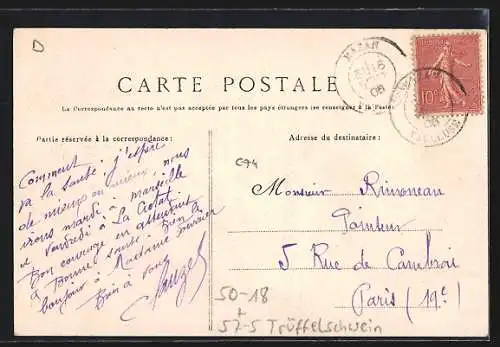 D
CARTE POSTALE
La Correspondance au recto n'est pas acceptée par tous les pays étrangers (se renseigner à la Poste)
Partie réservée à la correspondance :
Adresse du destinataire :
MAZAN
08
MAZAN
08
VAUCLUSE
10c
Comment
va la santé. j'espère
de mieux en mieux. nous
irons mardi à marseille
et vendredi à La Ciotat
Bon courage en attendant
& Bonne santé. Bien le
bonjour à Madame
Bien à vous
C94
Monsieur Rimoneau
Peintre
5 Rue de Cambrai
Paris (19e)
50-18
+
57-5 Trüffelschwein